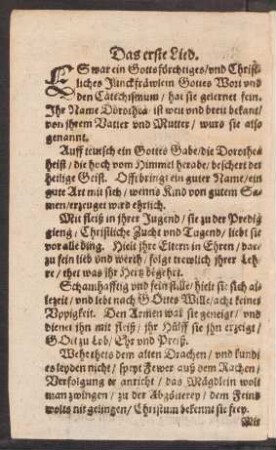 Das erste Lied.
ES war ein Gottsfürchtiges/ vnd Christ-
liches Jünckfräwlein Gottes Wort vnd
den Catechismum/ hat sie gelernet fein.
Ihr Name Dorothea ist weit vnd breit bekant/
von ihrem Vatter vnd Mutter/ wurd sie also
genannt.
Auff teutsch ein Gottes Gabe/ die Dorothea
heist/ die hoch vom Himmel herabe/ beschert der
heilige Geist. Offt bringt ein guter Name/ ein
gute Art mit sich/ wenns Kind von gutem Sa-
men/ erzeuget wird ehrlich.
Mit fleiß in ihrer Jugend/ sie zu der Predig
gieng/ Christliche Zucht vnd Tugend/ liebt sie
vor alle ding. Hielt ihre Eltern in Ehren/ dar-
zu fein lieb vnd werth/ folgt trewlich ihrer Leh-
re/ thet was ihr Hertz begehrt.
Schamhafftig vnd fein stille/ hielt sie sich al-
lezeit/ vnd lebt nach GOttes Wille/ acht keiner
Vppigkeit. Den Armen war sie geneigt/ vnd
dienet ihn mit fleiß/ ihr Hülff sie ihn erzeigt/
GOtt zu Lob/ Ehr vnd Preiß.
Wehe theis dem alten Drachen/ vnd kundt
es leyden nicht/ speyt Fewer auß dem Rachen/
Verfolgung er anricht/ das Mägdlein wolt
man zwingen/ zu der Abgötterey/ dem Feind
wolts nit gelingen/ Christum bekennt sie frey.
Mit